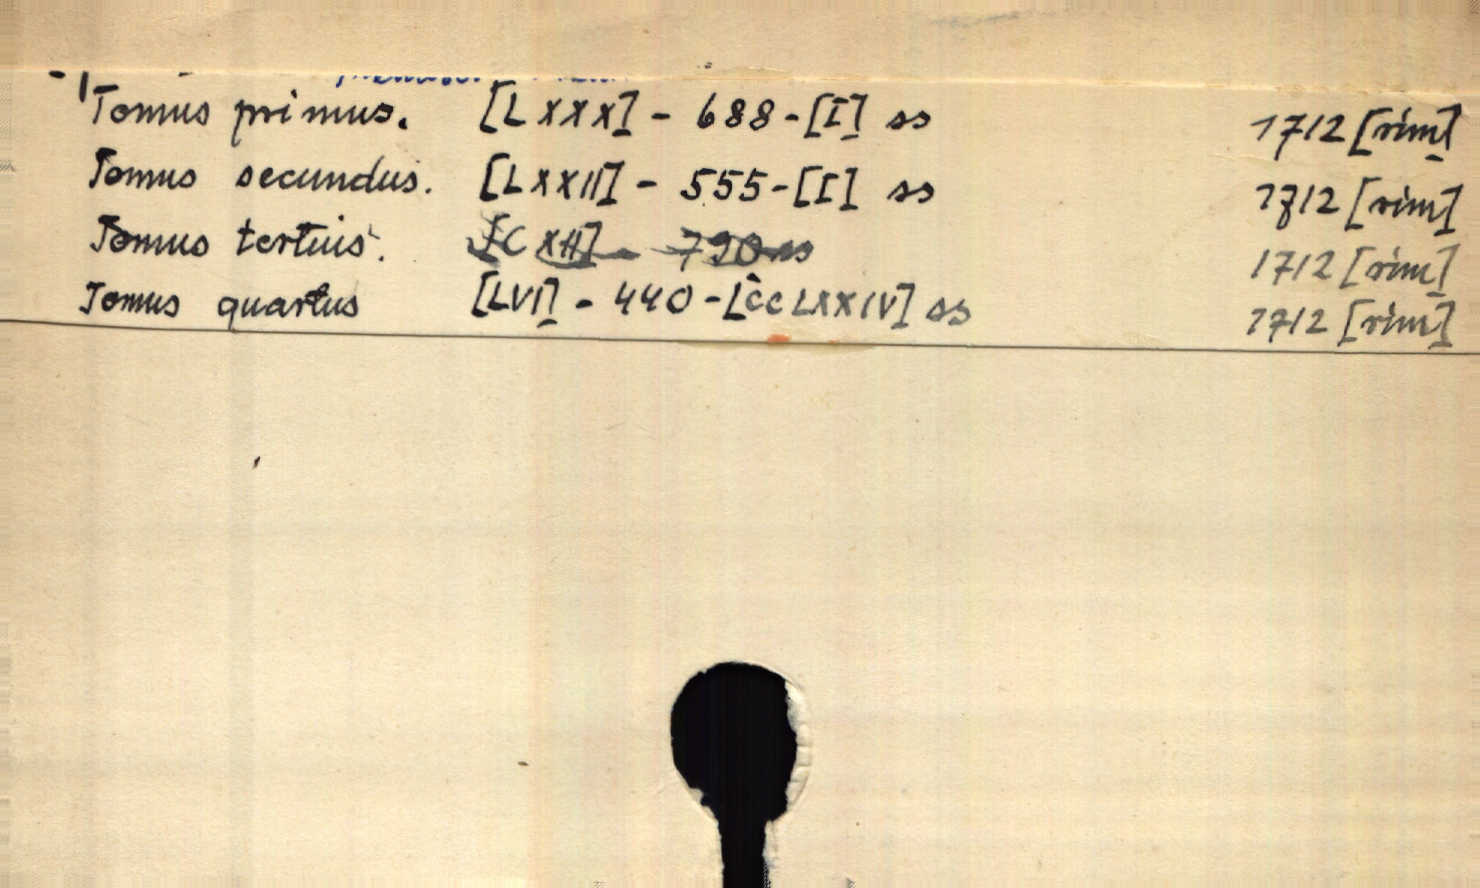 Tomus primus. [LXXX] - 688 - [I] ss 1712 [rim]
Tomus secundus. [LXXII] - 555 - [I] ss 1712 [rim]
Tomus tertius. [CXII] - 790 ss 1712 [rim]
Tomus quartus [LVI] - 440 - [CCLXXIV] ss 1712 [rim]